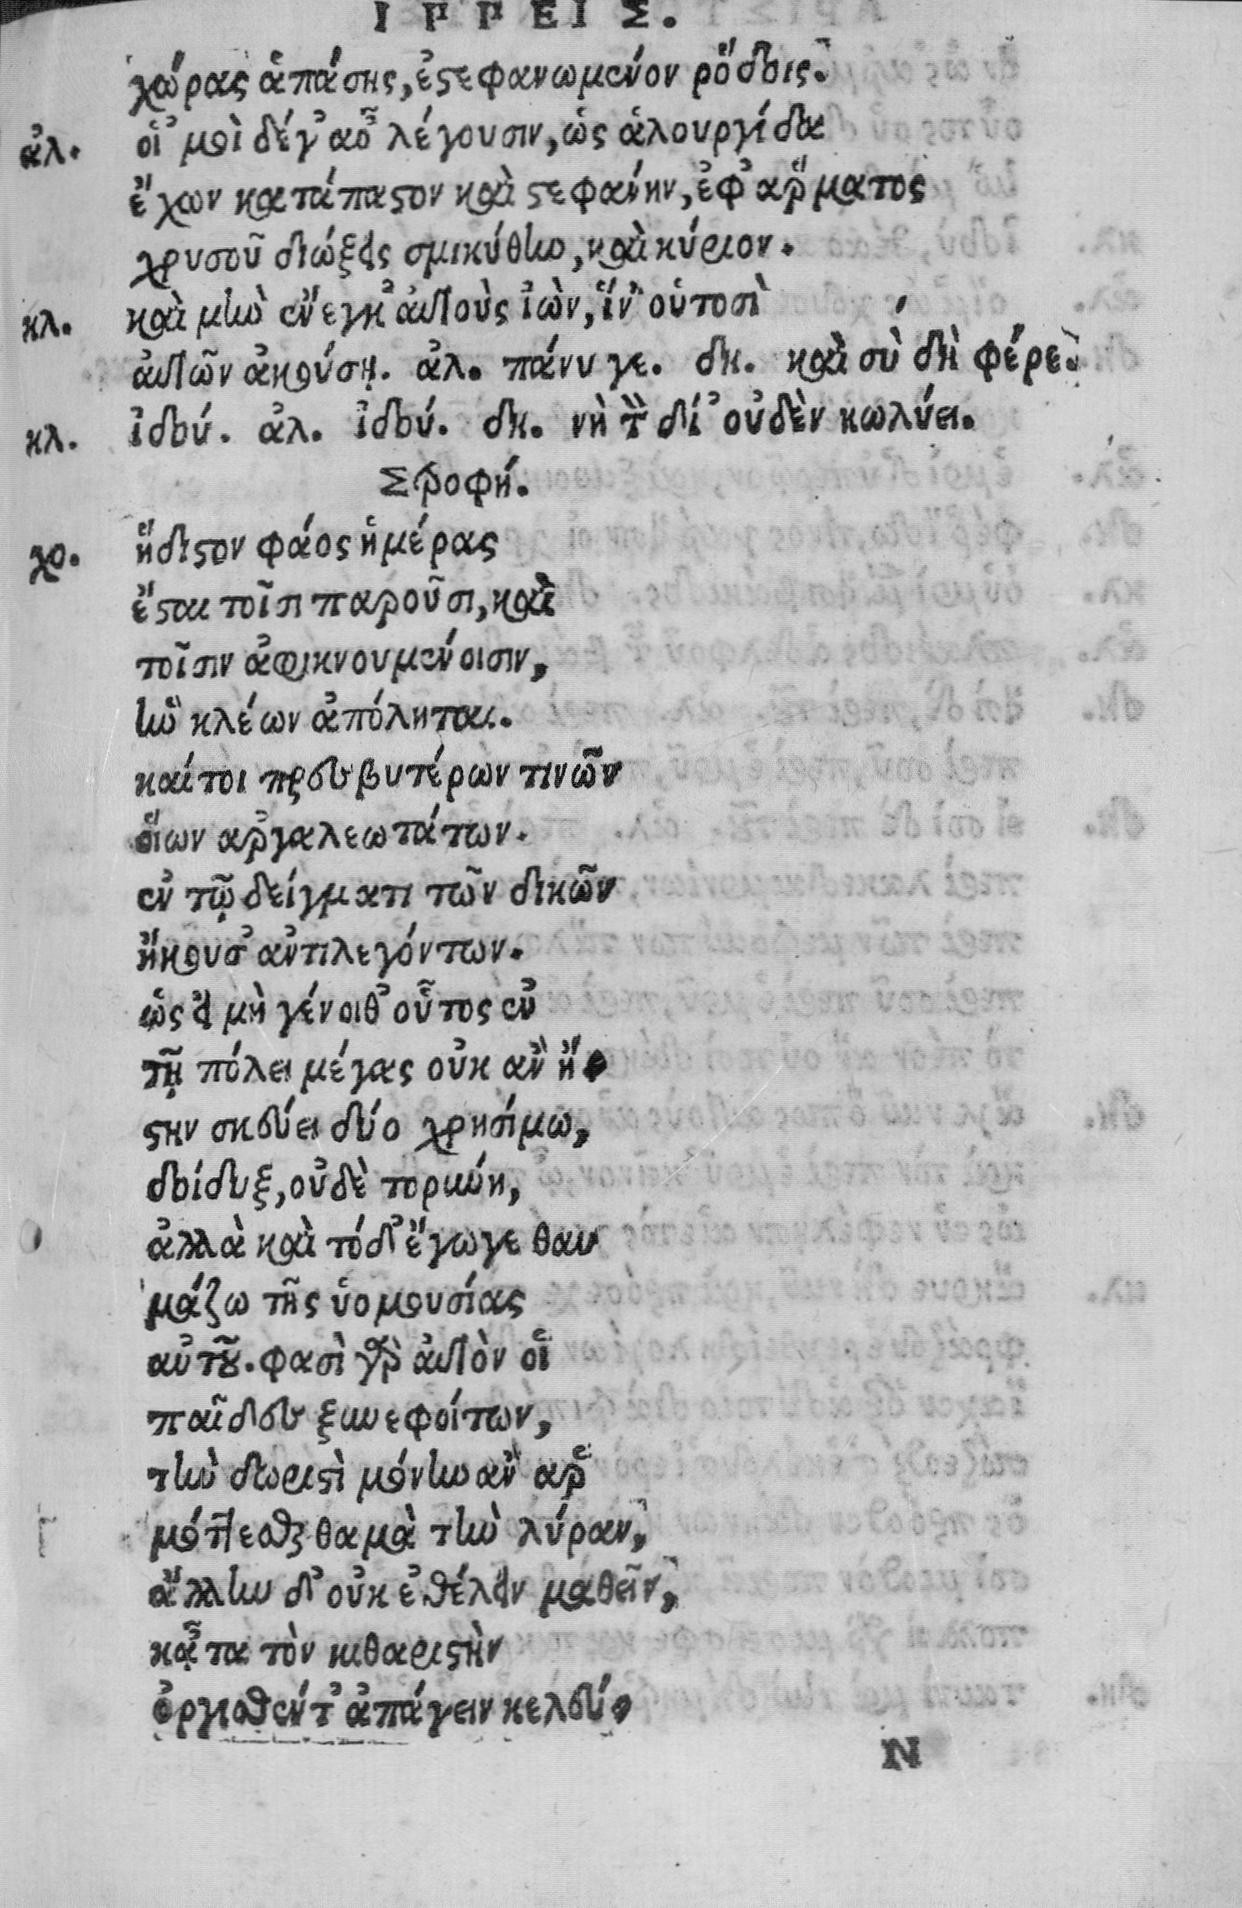 ΙΠΠΕΙΣ.
χώρας ἁπάσης, ἐστεφανωμένον ῥόδοις.
ἀλ. οἱ ἐμοὶ δέ γ' αὖ λέγουσιν, ὡς ἁλουργίδα
ἔχων κατάπαστον καὶ στεφάνην, ἐφ' ἅρματος
χρυσοῦ διώξεις σμικύθην, καὶ κύριον.
κλ. καὶ μὴν ἔνεγκ' αὐτοὺς ἰὼν, ἵν' οὑτοσὶ
αὐτῶν ἀκούσῃ. ἀλ. πάνυ γε. δη. καὶ σὺ δὴ φέρε.
κλ. ἰδού. ἀλ. ἰδού. δη. νὴ τὸν δί' οὐδὲν κωλύει.
Στροφή.
χο. ἥδιστον φάος ἡμέρας
ἔσται τοῖσι παροῦσι, καὶ
τοῖσιν ἀφικνουμένοισιν,
ἢν κλέων ἀπόληται.
καίτοι πρεσβυτέρων τινῶν
οἵων ἀργαλεωτάτων.
ἐν τῷ δείγματι τῶν δικῶν
ἤκουσ' ἀντιλεγόντων.
ὡς εἰ μὴ γένοιθ' οὗτος ἐν
τῇ πόλει μέγας οὐκ ἂν ἤ-
στην σκεύει δύο χρησίμω,
δοίδυξ, οὐδὲ τορκύνη,
ἀλλὰ καὶ τόδ' ἔγωγε θαυ
μάζω τῆς ὑομουσίας
αὐτοῦ. φασὶ γὰρ αὐτὸν οἱ
παῖδες ξυνεφοίτων,
τὴν δωριστὶ μόνην ἂν ἁρ
μόττεσθαι θαμὰ τὴν λύραν,
ἄλλην δ' οὐκ ἐθέλειν μαθεῖν,
κᾆτα τὸν κιθαριστὴν
ὀργισθέντ' ἀπάγειν κελεύ-
N